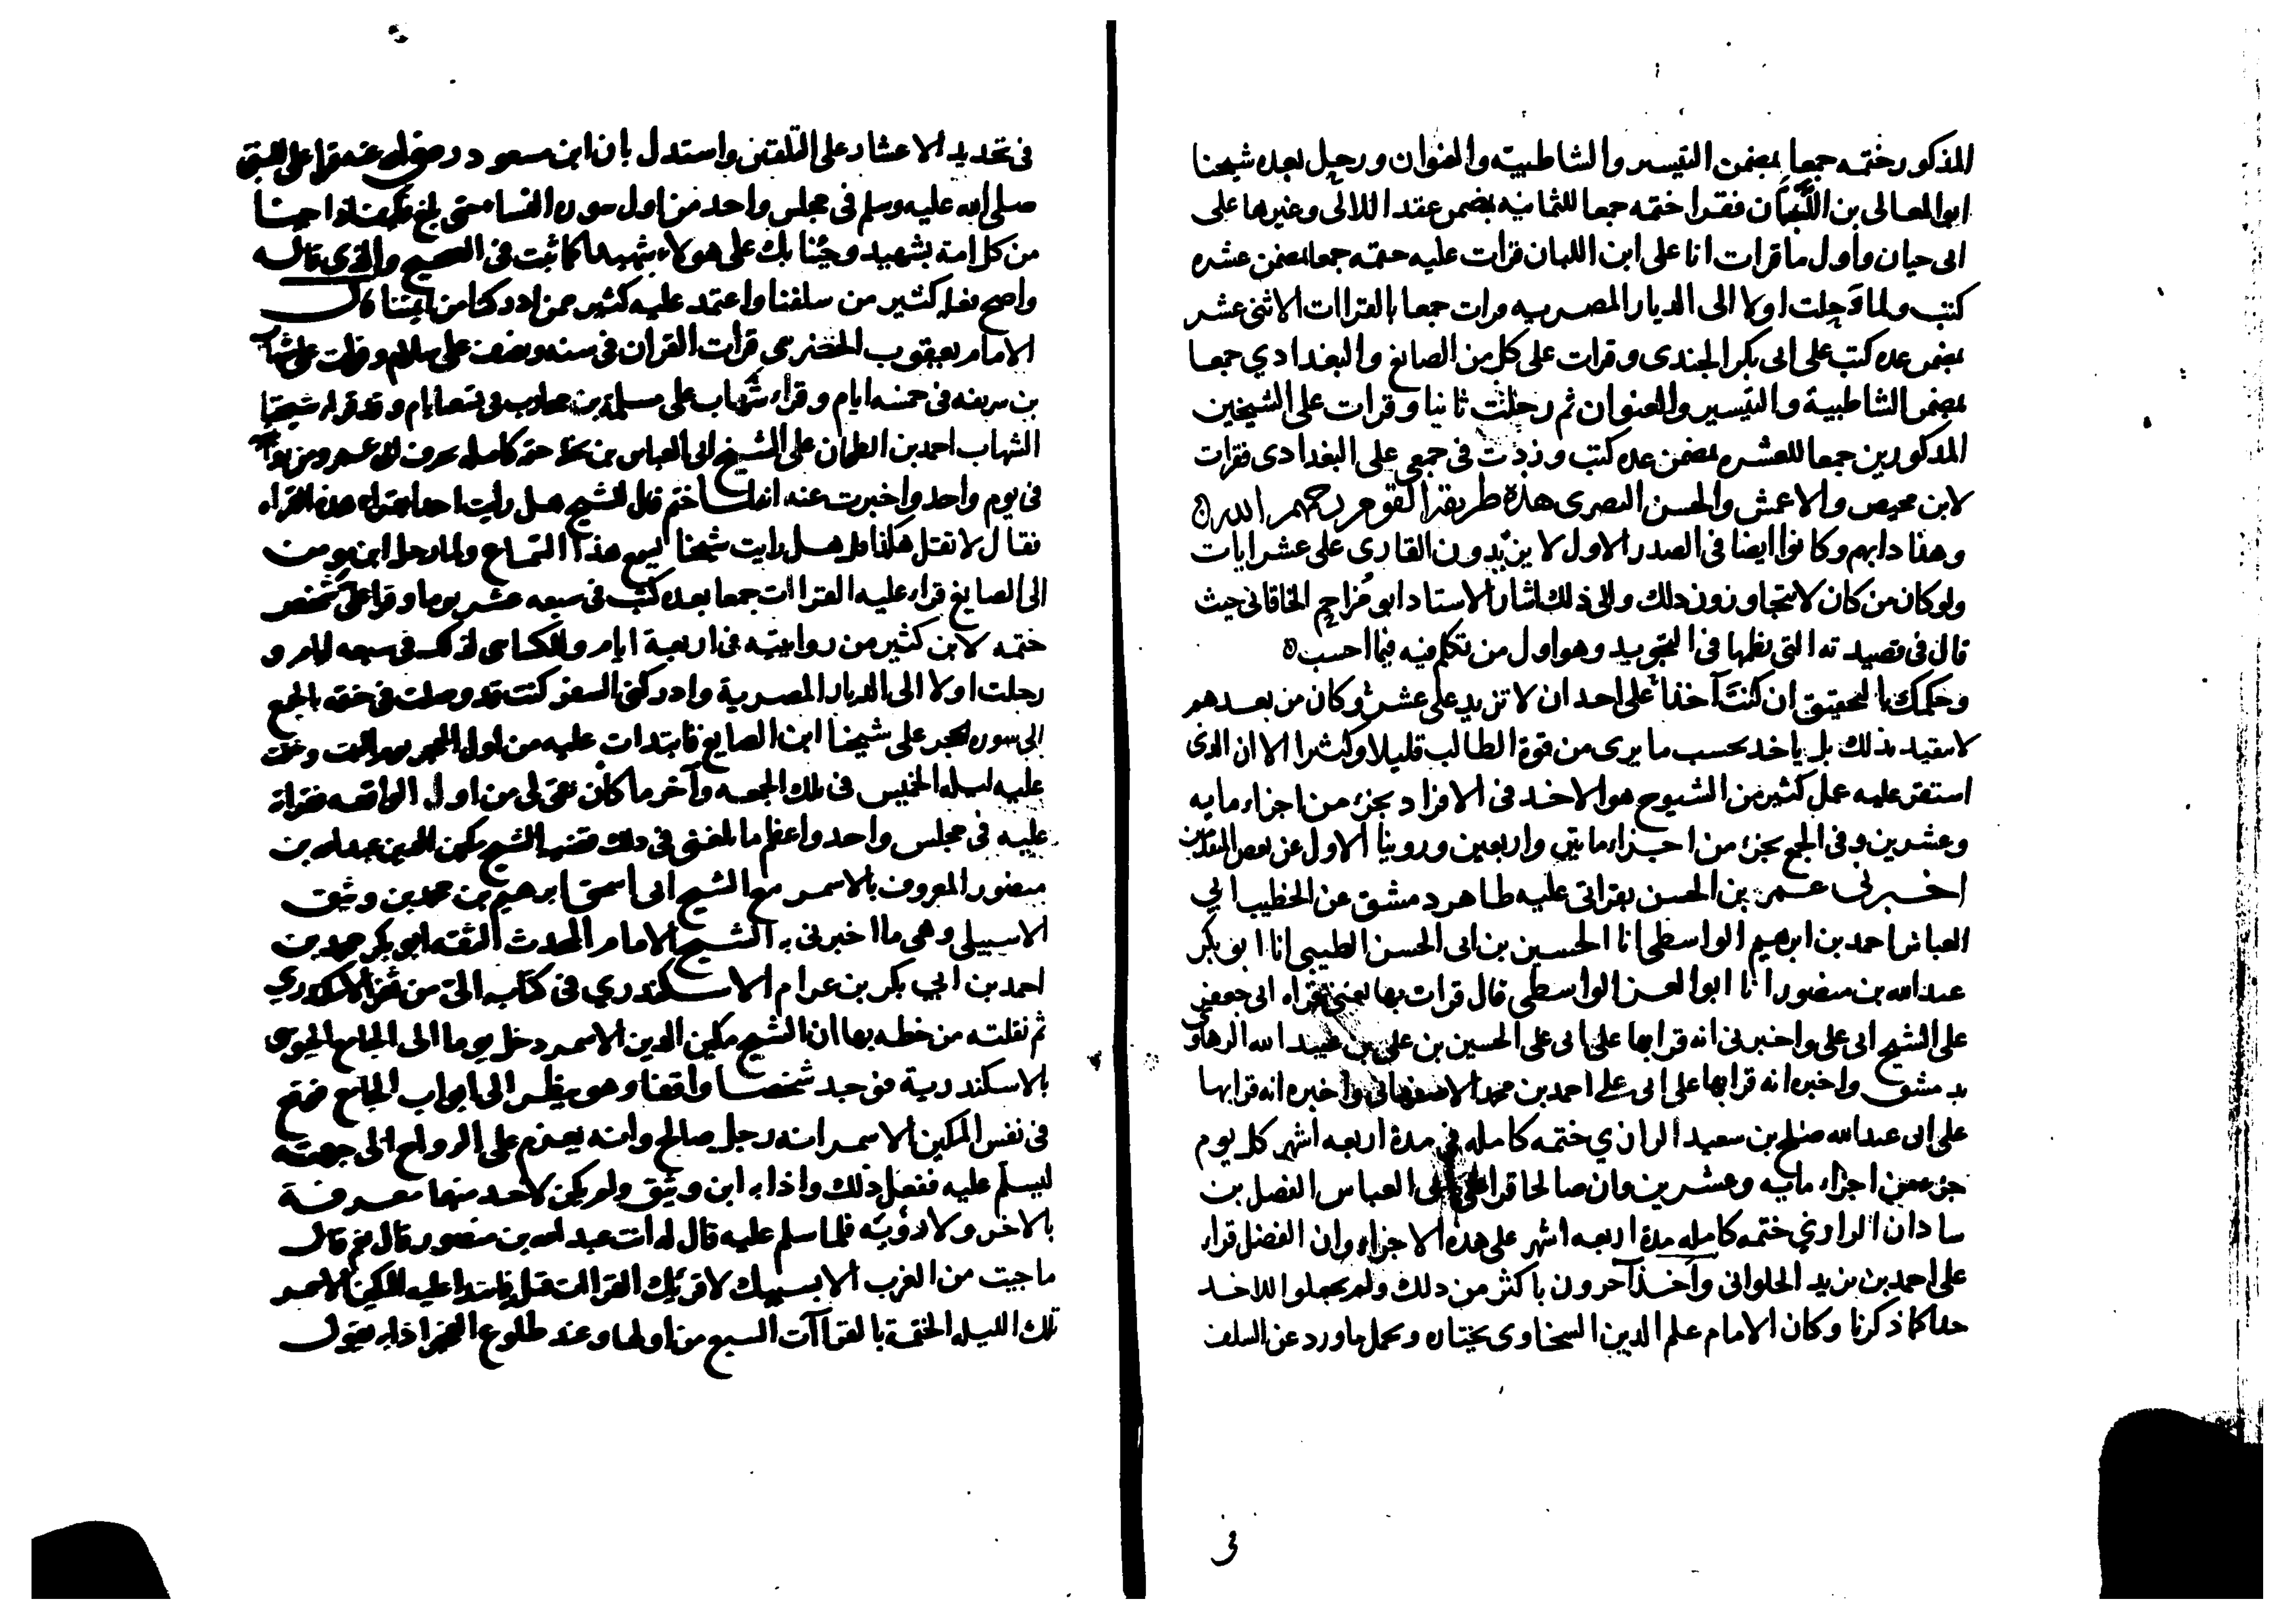 المذكور ختمه جمعا بمضمن التيسير والشاطبية والعنوان ورحل بعده شيخنا
ابو المعالى بن اللبان فقرا ختمه جمعا للثمانيه بضمن عقد اللالى وغيرها على
ابى حيان واول ما قرات انا على ابن اللبان قرات عليه ختمه جمعا بمضمن عشره
كتب ولما رحلت اولا الى الديار المصريه قرات جمعا بالقراات الاثنى عشر
بمضمن عده كتب على ابى بكر الجندى وقرات على كل من الصايغ والبغدادي جمعا
بمضمن الشاطبية والتيسير والعنوان ثم رحلت ثانيا وقرات على الشيخين
المذكورين جمعا للعشره بمضمن عده كتب وزدت فى جمعى على البغدادى فقرات
لابن محيصن والاعمش والحسن البصرى هذه طريقة القوم رحمهم الله ه
وهذا دابهم وكانوا ايضا فى الصدر الاول لا يزيدون القارى على عشر ايات
ولو كان من كان لا يتجاوزون ذلك والى ذلك اشار الاستاد ابو مزاحم الخاقانى حيث
قال فى قصيدته التى نظمها فى التجويد وهو اول من تكلم فيه فيما احسب ه
وحكمك بالتحقيق ان كنت آخذا على احد ان لا تزيد على عشر وكان من بعدهم
لا يتقيد بذلك بل ياخد بحسب ما يرى من قوة الطالب قليلا وكثيرا الا ان الذى
استقر عليه عمل كثير من الشيوح هو الاخد فى الافراد بجزء من اجزاء مايه
وعشرين وفى الجمع بجزء من اجزاء مايتين واربعين وروينا الاول عن بعض المتقدمين
اخبرنى عمر بن الحسن بقراتى عليه طاهر دمشق عن الخطيب ابي
العباس احمد بن ابرهيم الواسطى انا الحسين بن ابى الحسن الطيبى انا ابو بكر
عبد الله بن منصور انا ابو العز الواسطى قال قرات بها يعنى قراه ابى جعفر
على الشيخ ابى على واخبرنى انه قرا بها على ابى على الحسين بن على بن عبيد الله الرهاوى
بدمشق واخبره انه قرا بها على ابى على احمد بن محمد الاصفهانى واخبره انه قرا بها
على ابى عبد الله صالح بن سعيد الرازي ختمه كامله فى مدة اربعه اشهر كل يوم
جزء من اجزاء مايه وعشرين وان صالحا قرا على ابى العباس الفضل بن
سادان الرازي ختمه كامله مدة اربعه اشهر على هذه الاجزاء وان الفضل قراء
على احمد بن يزيد الحلوانى وآخذ آخرون باكثر من دلك ولم يجعلوا للاخد
حدا كما ذكرنا وكان الامام علم الدين السخاوى يختاره ويحمل ما ورد عن السلف
فى تحديد الاعشار على التلقين واستدل بان ابن مسعود رضى الله عنه قرا على النبى
صلى الله عليه وسلم فى مجلس واحد من اول سوره النساء حتى بلغ فكيف اذا جينا
من كل امة بشهيد وجينا بك على هولاء شهيدا كما ثبت فى الصحيح والذى قاله
واضح فعله كثير من سلفنا واعتمد عليه كثير ممن ادركنا من ايمتنا قال
الامام يعقوب الحضرمى قرات القران فى سنه ونصف على سلام وقرات على شهاب
بن شريفه فى خمسه ايام وقراء شهاب على مسلمة بن محارب فى تسعه ايام وقد قراء شيخنا
الشهاب احمد بن الطحان على الشيخ ابى العباس بن نحله ختمة كامله بحرف ابى عمرو من روايتيه
فى يوم واحد واخبرت عنه انه لما ختم قال للشيخ هل رايت احدا يقراء هذه القراه
فقال لا تقل هكذا قل هل رايت شيخا يسمع هذا السماع ولما رحل ابن مومن
الى الصايغ قراء عليه القراات جمعا بعده كتب فى سبعه عشر يوما وقرا على شخص
ختمه لابن كثير من روايتيه فى اربعة ايام وللكساى كذلك فى سبعه ايام و
رحلت اولا الى الديار المصرية وادركنى السفر كنت قد وصلت فى ختمه بالجمع
الى سوره الحجر على شيخنا ابن الصايغ فابتدات عليه من اول الحجر يوم السبت وختمت
عليه ليله الخميس فى تلك الجمعه وآخر ما كان بقى لى من اول الواقعه فقراته
عليه فى مجلس واحد واعظم ما بلغنى فى ذلك قضيه الشيخ مكين الدين عبد الله بن
منصور المعروف بالاسمر مع الشيخ ابى اسحق ابرهيم بن محمد بن وثيق
الاسبيلى وهى ما اخبرنى به الشيخ الامام المحدث الثقه ابو بكر محمد بن
احمد بن ابي بكر بن عرام الاسكندري فى كتابه الى من ثغر الاسكندري
ثم نقلته من خطه بها ان الشيخ مكين الدين الاسمر دخل يوما الى الجامع الجيوشى
بالاسكندرية فوجد شخصا واقفا وهو ينظر الى ابواب الجامع فوقع
فى نفس المكين الاسمر انه رجل صالح وانه يعزم على الرواح الى جهته
ليسلم عليه ففعل ذلك واذا به ابن وثيق ولم يكن لاحد منهما معرفة
بالاخر ولا رؤية فلما سلم عليه قال له انت عبد الله بن منصور قال نعم قال
ما جيت من الغرب الا بسببك لاقريك القراات قيل فابتدا عليه المكين الاسمر
تلك الليله الختمة بالقراآت السبع من اولها وعند طلوع الفجر اذا به يقول